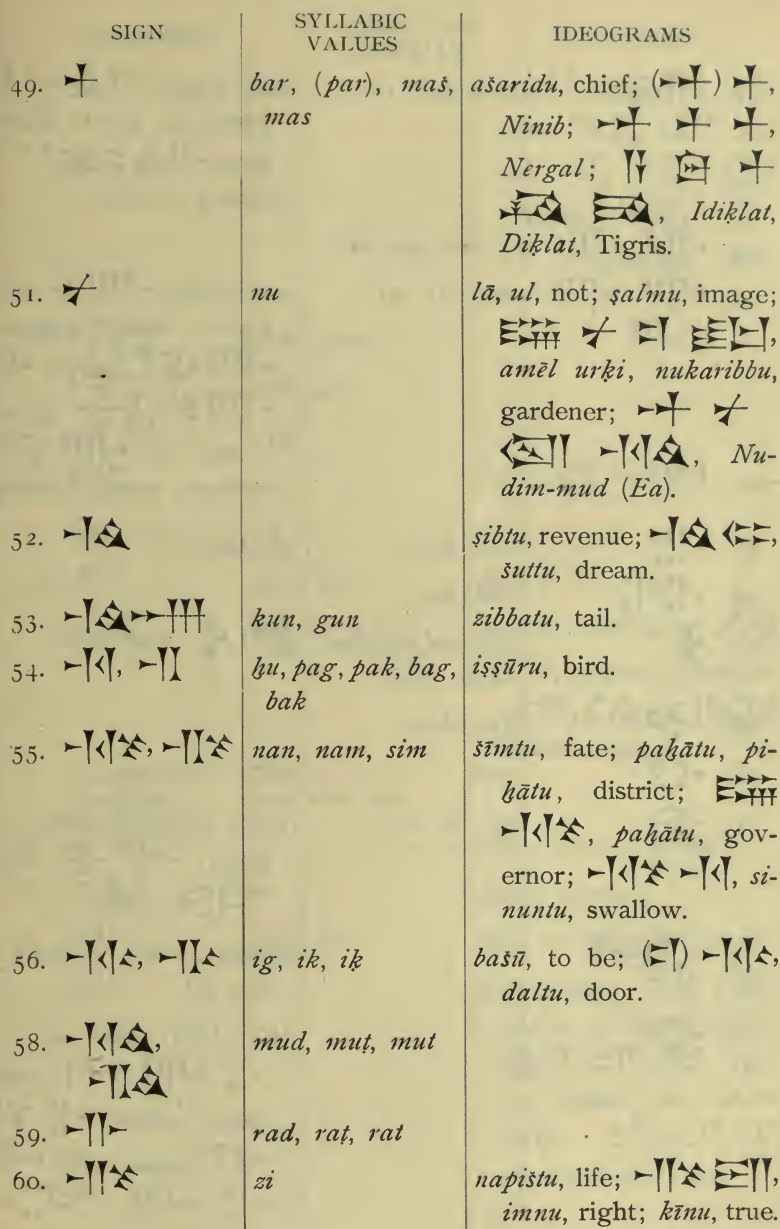 SIGN SYLLABIC VALUES IDEOGRAMS
49. 𒈦 bar, (par), maš, ašaridu, chief; (𒀭) 𒈦,
mas Ninib; 𒀭 𒈦 𒈦,
Nergal; 𒀀 𒇉 𒈦
𒄘 𒃼, Idiḳlat,
Diḳlat, Tigris.
51. 𒉡 nu lā, ul, not; ṣalmu, image;
𒇽 𒉡 𒄑 𒊬,
amēl urḳi, nukaribbu,
gardener; 𒀭 𒉡
𒁶 𒄷𒄭, Nu-
dim-mud (Ea).
52. 𒈧 ṣibtu, revenue; 𒈧 𒈪,
šuttu, dream.
53. 𒆲 kun, gun zibbatu, tail.
54. 𒄷, 𒄷 ḫu, pag, pak, bag, iṣṣūru, bird.
bak
55. 𒉆, 𒉆 nan, nam, sim šīmtu, fate; paḫātu, pi-
ḫātu, district; 𒇽
𒉆, paḫātu, gov-
ernor; 𒉆 𒄷, si-
nuntu, swallow.
56. 𒅅, 𒅅 ig, ik, iḳ bašū, to be; (𒄑) 𒅅,
daltu, door.
58. 𒄷𒄭, mud, muṭ, mut
𒄷𒄭
59. 𒋥 rad, raṭ, rat
60. 𒍣 zi napištu, life; 𒍣 𒁕,
imnu, right; kīnu, true.